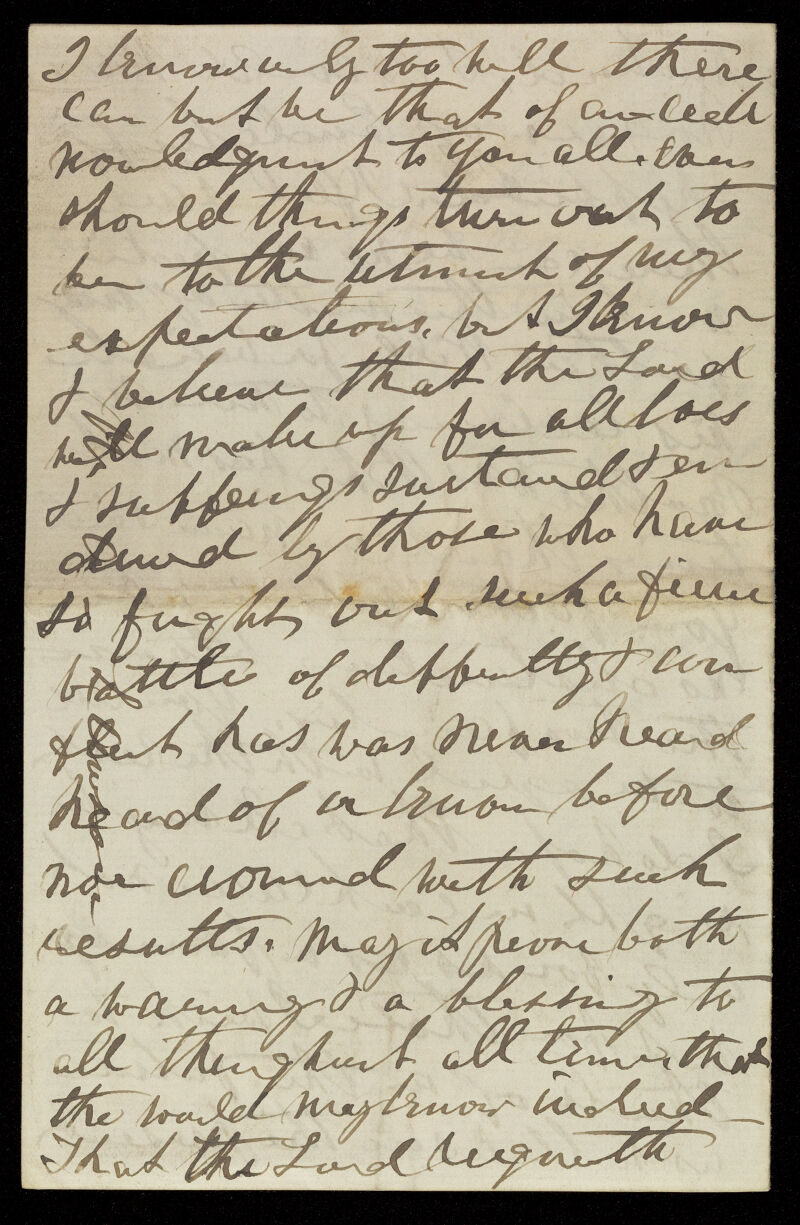 I know only too well there
can but be that of an ack
nowledgment to you all. even
should things turn out to
be to the utmost of my
expectations. but I know
& believe that the Lord
will make up for all loss
& sufferings sustaind & en
dured by those who have
so fught out such a fierce
battle of difficulty & con
flict has was never heard
heard of or known before
nor crowned with such
results. May it prove both
a warning & a blessing to
all throughout all time that
the world may know indeed
That the Lord reigneth